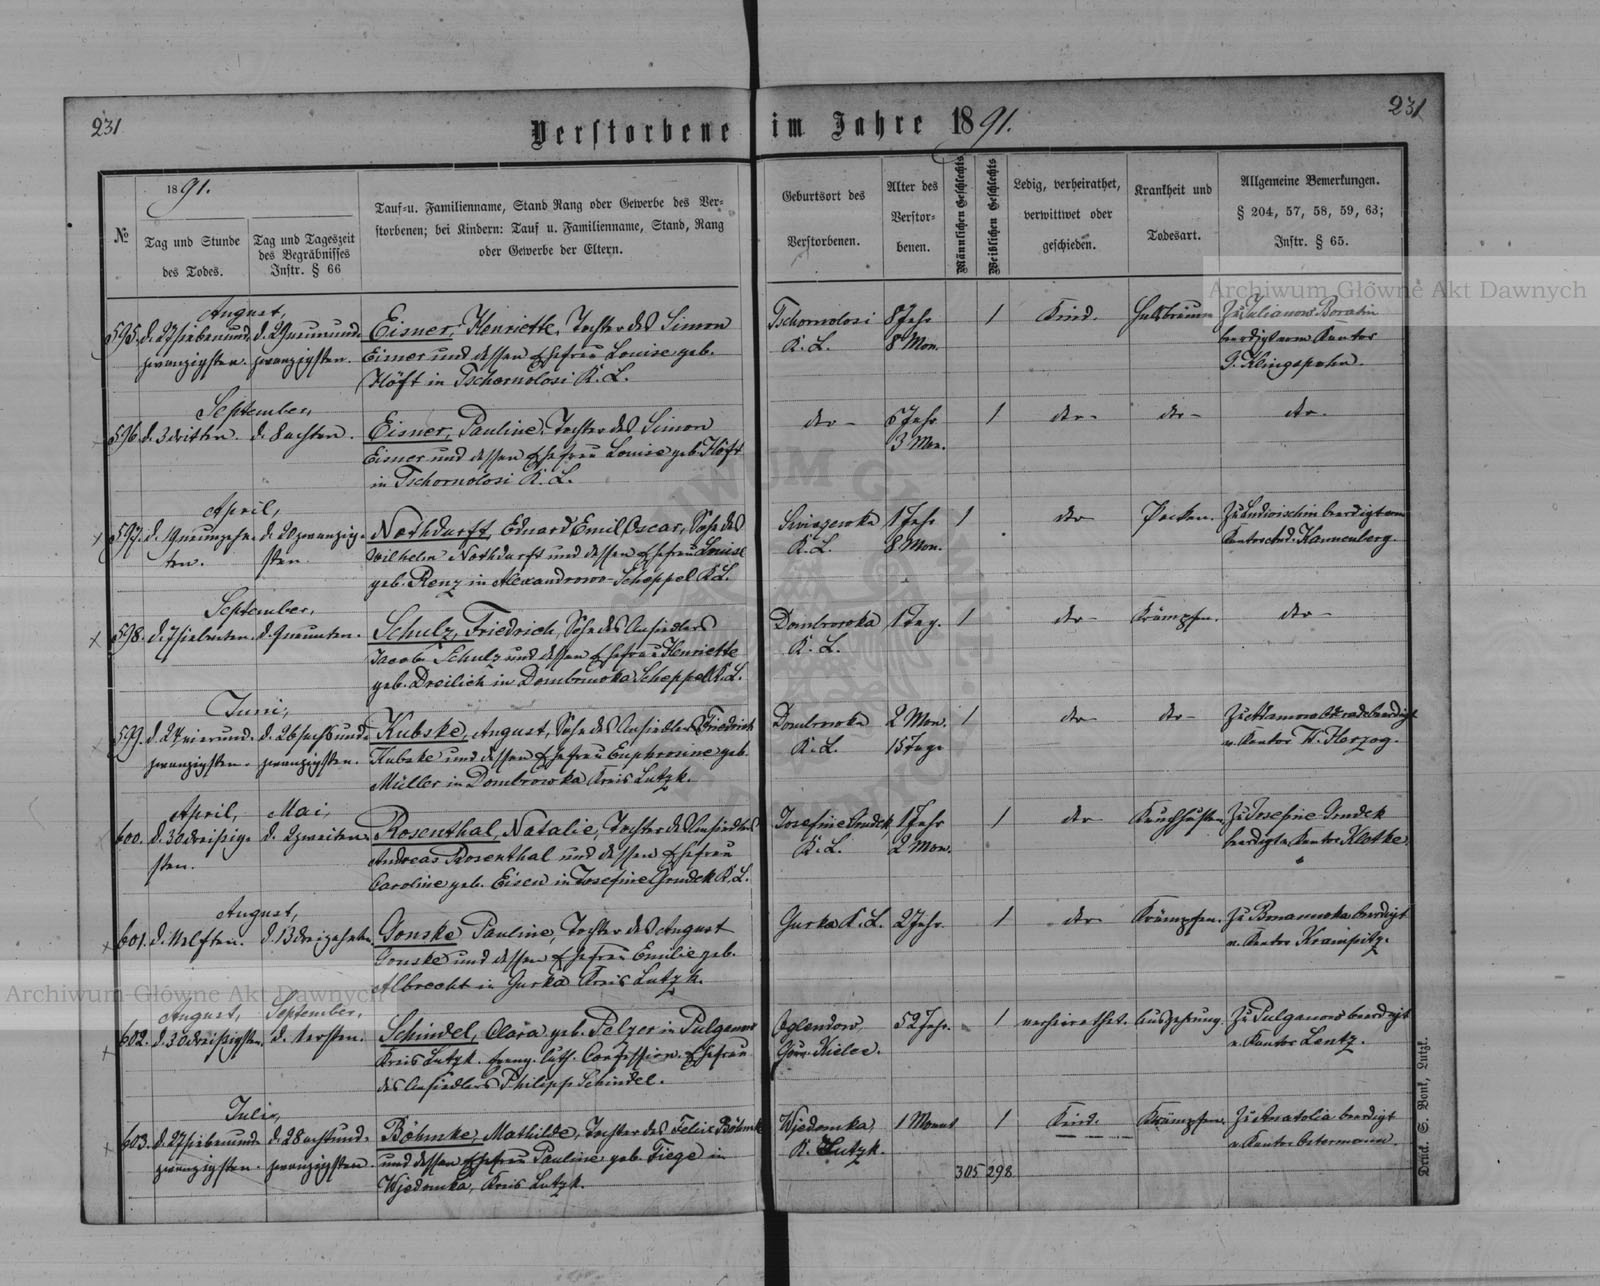 231
231
Verstorbene im Jahre 1891.
№
1891.
Tag und Stunde
des Todes.
Tag und Tageszeit
des Begräbnisses
Instr. § 66
Tauf- u. Familienname, Stand Rang oder Gewerbe des Ver-
storbenen; bei Kindern: Tauf u. Familienname, Stand, Rang
oder Gewerbe der Eltern.
Geburtsort des
Verstorbenen.
Alter des
Verstor-
benen.
Männlichen Geschlechts
Weiblichen Geschlechts
Ledig, verheirathet,
verwittwet oder
geschieden.
Krankheit und
Todesart.
Allgemeine Bemerkungen.
§ 204, 57, 58, 59, 63;
Instr. § 65.
August,
595. d. 27 siebenund- d. 29 neunund- Eisner, Henriette, Tochter des Simon Tschornolosi 8 Jahr 1 Kind. Halsbräune Zu Julianow-Boratin
zwanzigsten. zwanzigsten. Eisner und dessen Ehefrau Louise geb. K. L. 8 Mon. beerdigt vom Kantor
Höft in Tschornolosi K. L. G. Klingspohn.
September,
596. d. 3 dritten. d. 8 achten. Eisner, Pauline, Tochter des Simon der- 5 Jahr 1 der- der- der-
Eisner und dessen Ehefrau Louise geb. Höft 3 Mon.
in Tschornolosi K. L.
April,
597. d. 19 neunzehn- d. 20 zwanzig- Nothdurft, Eduard Emil Oscar, Sohn des 1 Jahr 1 der- Pocken. beerdigt vom
ten. sten. Wilhelm Nothdurft und dessen Ehefrau Louise K. L. 8 Mon. Kantor Kannenberg
geb. Renz in Alexandrowo-Scheppel K. L.
September,
598. d. 7 siebenten. d. 9 neunten. Schulz, Friedrich, Sohn des Ansiedlers Dombrowka 1 Tag. 1 der- Krämpfen. der-
Jacob Schulz und dessen Ehefrau Henriette K. L.
geb. Dreilich in Dombrowka Scheppel K. L.
Juni,
599. d. 24 vierund- d. 26 sechsund- Kubske, August, Sohn des Ansiedlers Friedrich Dombrowka 2 Mon. 1 der- der- beerdigt
zwanzigsten. zwanzigsten. Kubske und dessen Ehefrau Euphrosine geb. K. L. 15 Tage v. Kantor W. Herzog.
Müller in Dombrowka Kreis Lutzk.
April, Mai,
600. d. 30 dreißig- d. 2 zweiten. Rosenthal, Natalie, Tochter des Ansiedlers Josefine Grudek 1 Jahr 1 der- Keuchhusten. Zu Josefine Grudek
sten. Andreas Rosenthal und dessen Ehefrau K. L. 2 Mon. beerdigt v. Kantor Klotke.
Caroline geb. Eisen in Josefine Grudek K. L.
August,
601. d. 11 elften. d. 13 dreizehnten Gonske Pauline, Tochter des August Gurka K. L. 2 Jahr. 1 der- Krämpfen. Zu Romanowka beerdigt
Gonske und dessen Ehefrau Emilie geb. v. Kantor Krampitz.
Albrecht in Gurka Kreis Lutzk.
August, September,
602. d. 30 dreißigsten. d. 1 ersten. Schindel, Clara geb. Pelzer in Pulganow Oglendow, 52 Jahr. 1 verheirathet. Auszehrung. Zu Pulganow beerdigt
Kreis Lutzk. evang. luth. Confession. Ehefrau Gouv. Kielce. v. Kantor Lentz.
des Ansiedlers Philipp Schindel.
Juli,
603. d. 27 siebenund- d. 28 achtund- Böhmke, Mathilde, Tochter des Felix Böhmke Wjedomka, 1 Monat 1 Kind. Krämpfen. Zu Anatolia beerdigt
zwanzigsten. zwanzigsten. und dessen Ehefrau Pauline geb. Fiege in K. Lutzk. v. Kantor Ostermann
Wjedomka, Kreis Lutzk.
305 298
Druck. S. Bonk, Lutzk.
Archiwum Główne Akt Dawnych
Archiwum Główne Akt Dawnych